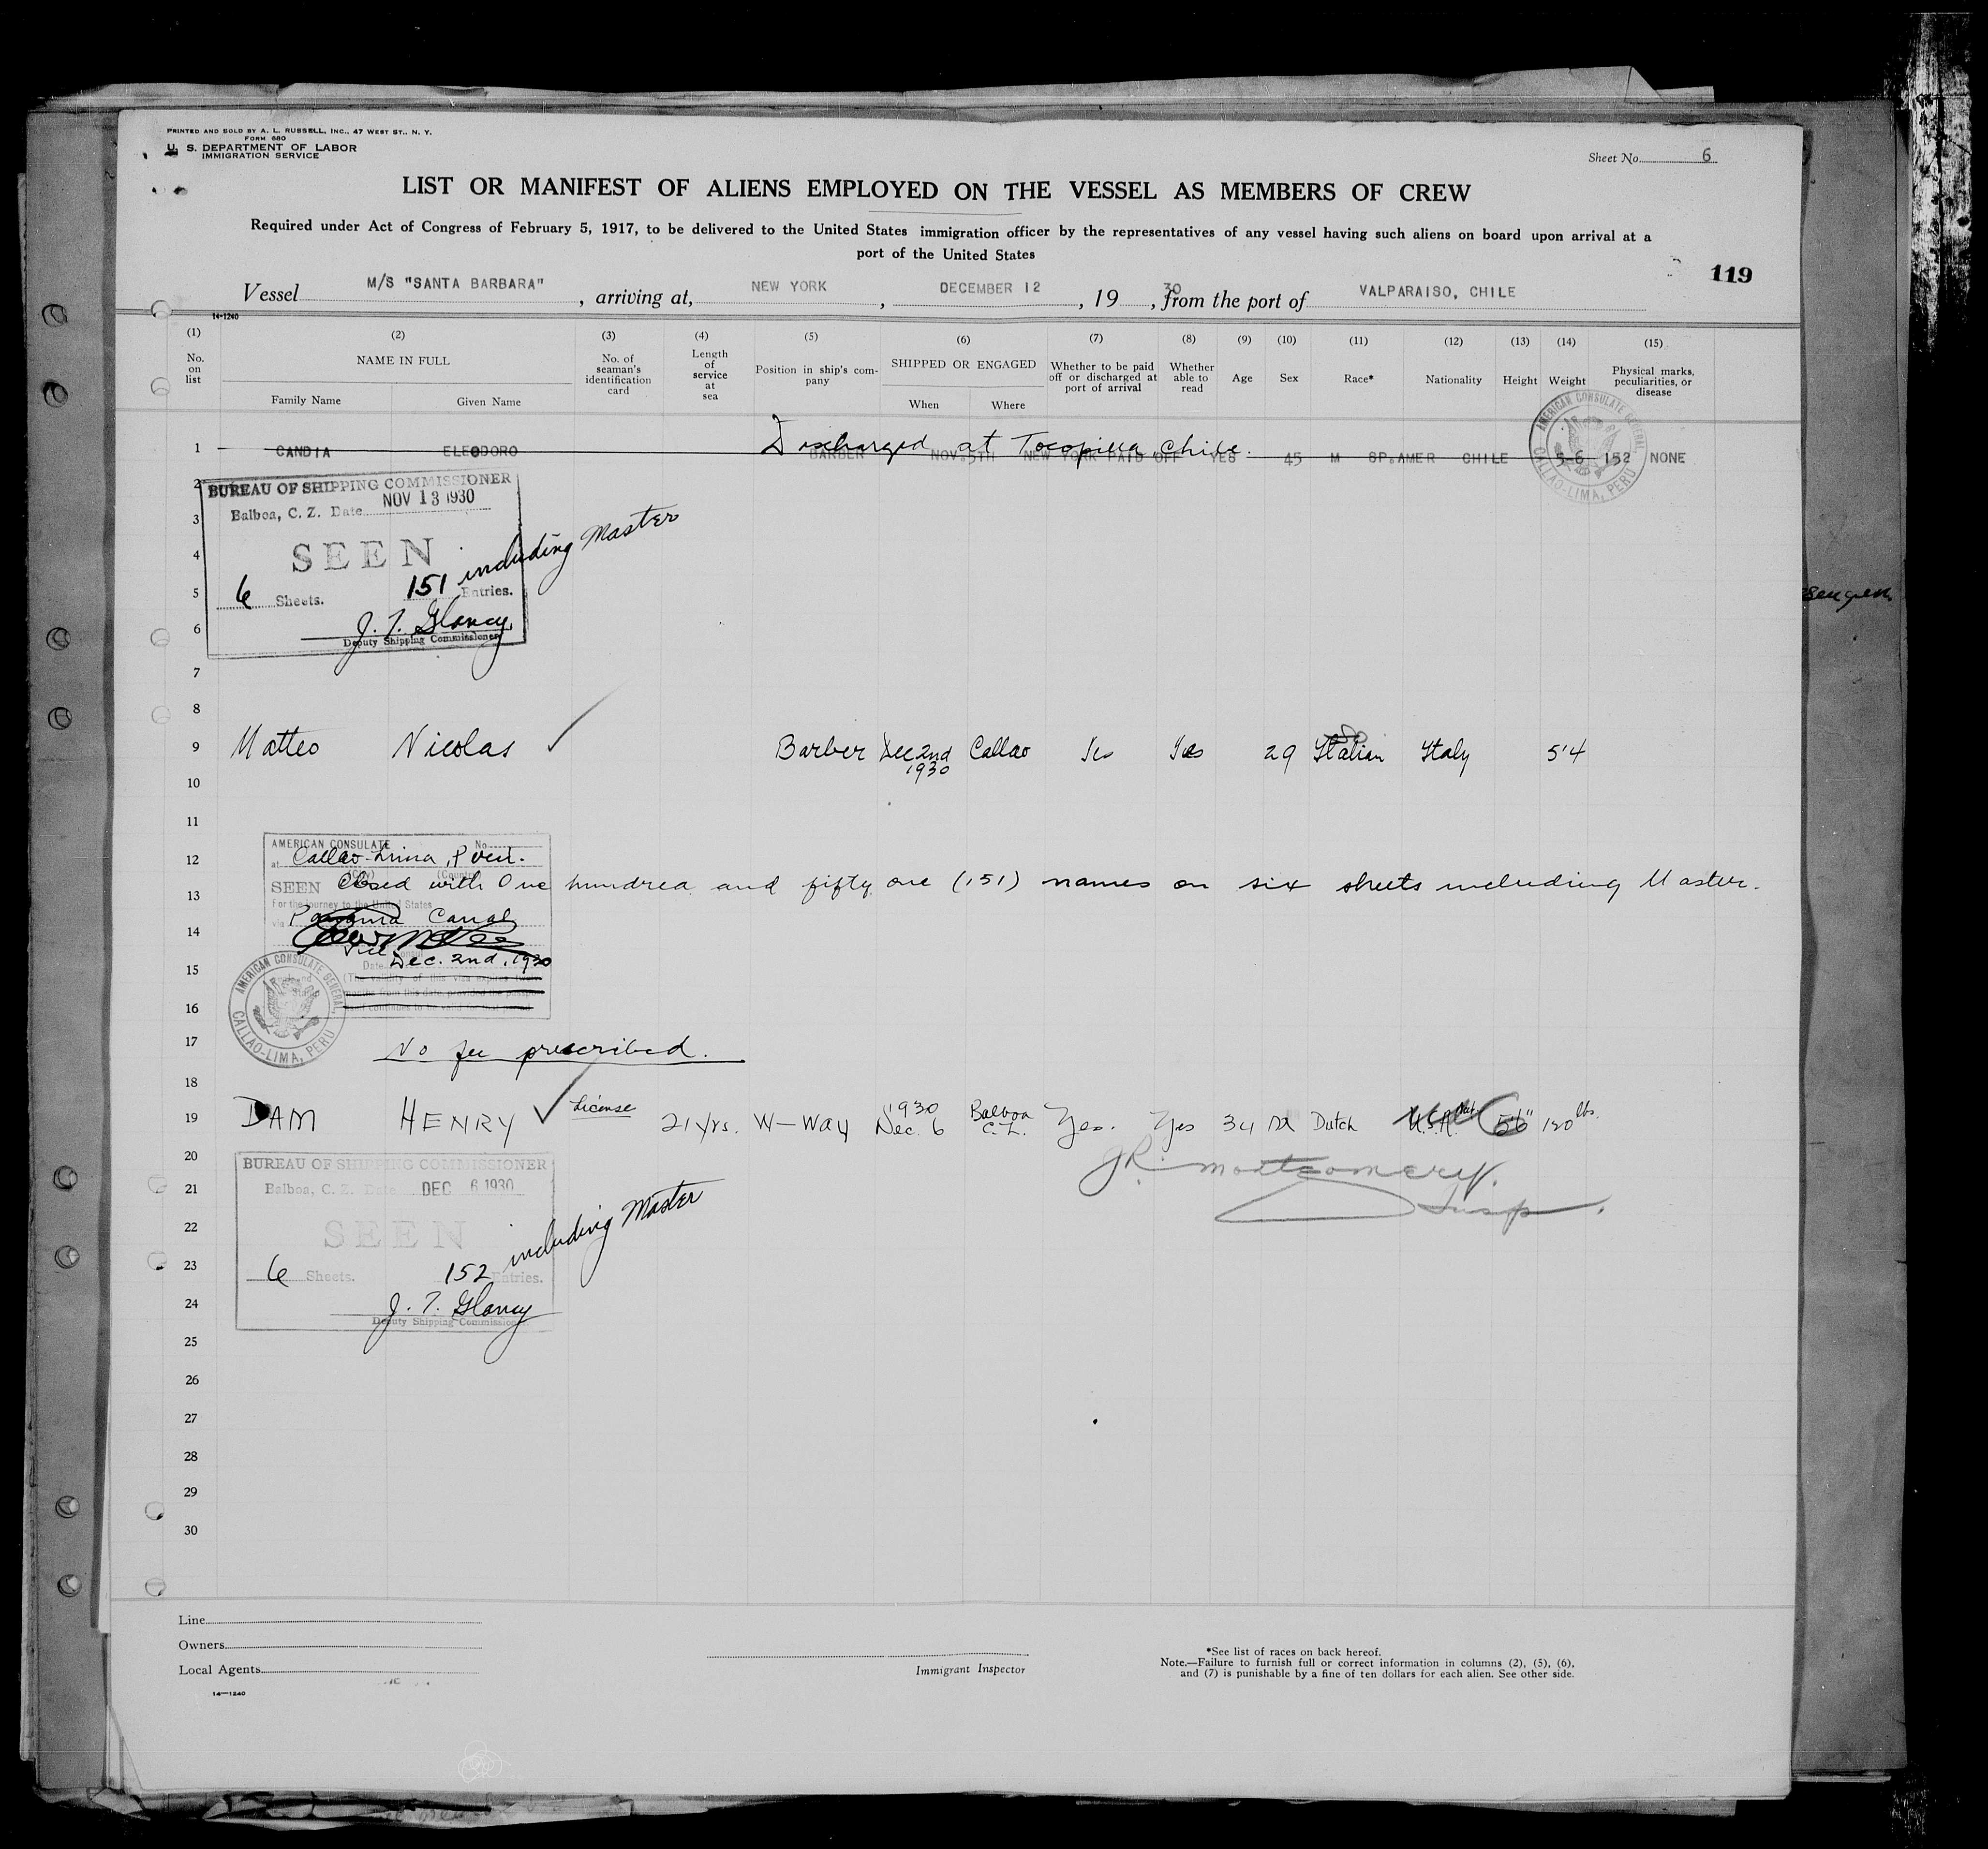 PRINTED AND SOLD BY A. L. RUSSELL, INC., 47 WEST ST., N. Y.
FORM 680
U. S. DEPARTMENT OF LABOR
IMMIGRATION SERVICE
Sheet No. 6
LIST OR MANIFEST OF ALIENS EMPLOYED ON THE VESSEL AS MEMBERS OF CREW
Required under Act of Congress of February 5, 1917, to be delivered to the United States immigration officer by the representatives of any vessel having such aliens on board upon arrival at a
port of the United States
119
Vessel M/S "SANTA BARBARA", arriving at, NEW YORK, DECEMBER 12, 19 30, from the port of VALPARAISO, CHILE
14-1240
(1) (2) (3) (4) (5) (6) (7) (8) (9) (10) (11) (12) (13) (14) (15)
No. on list
NAME IN FULL
Family Name Given Name
No. of seaman's identification card
Length of service at sea
Position in ship's company
SHIPPED OR ENGAGED
When Where
Whether to be paid off or discharged at port of arrival
Whether able to read
Age
Sex
Race*
Nationality
Height
Weight
Physical marks, peculiarities, or disease
Discharged at Tocopilla, Chile.
1 CANDIA ELEODORO BARBER NOV.5TH NEW YORK PAID OFF YES 45 M SP.AMER CHILE 5-6 152 NONE
AMERICAN CONSULATE GENERAL
CALLAO-LIMA, PERU
2
BUREAU OF SHIPPING COMMISSIONER
Balboa, C. Z. Date NOV 13 1930
3
SEEN
4
6 Sheets. 151 Entries. including Master
5
J. T. Glancy
6
Deputy Shipping Commissioner
7
8
9 Matteo Nicolas Barber Dec 2nd 1930 Callao Yes Yes 29 Italian Italy 5'4
10
11
AMERICAN CONSULATE No.
12 at Callao-Lima, Peru.
(City) (Country)
13 SEEN Closed with One hundred and fifty one (151) names on six sheets including Master.
For the journey to the United States
via Panama Canal
14
Dec. 2nd, 1930
15 Date
(The validity of this visa expires
16
AMERICAN CONSULATE GENERAL
CALLAO-LIMA, PERU
17 No fee prescribed.
18
19 DAM HENRY License 21 yrs. W-Way 1930 Dec. 6 Balboa C.Z. Yes. Yes 34 M Dutch U.S.A. 5'6" 150 lbs.
20 J.R. Montgomery.
Insp.
BUREAU OF SHIPPING COMMISSIONER
21 Balboa, C. Z. Date DEC 6 1930
22 SEEN
23 6 Sheets. 152 Entries. including Master
24 J. T. Glancy
Deputy Shipping Commissioner
25
26
27
28
29
30
Line
Owners
Local Agents
Immigrant Inspector
*See list of races on back hereof.
Note.—Failure to furnish full or correct information in columns (2), (5), (6),
and (7) is punishable by a fine of ten dollars for each alien. See other side.
14—1240